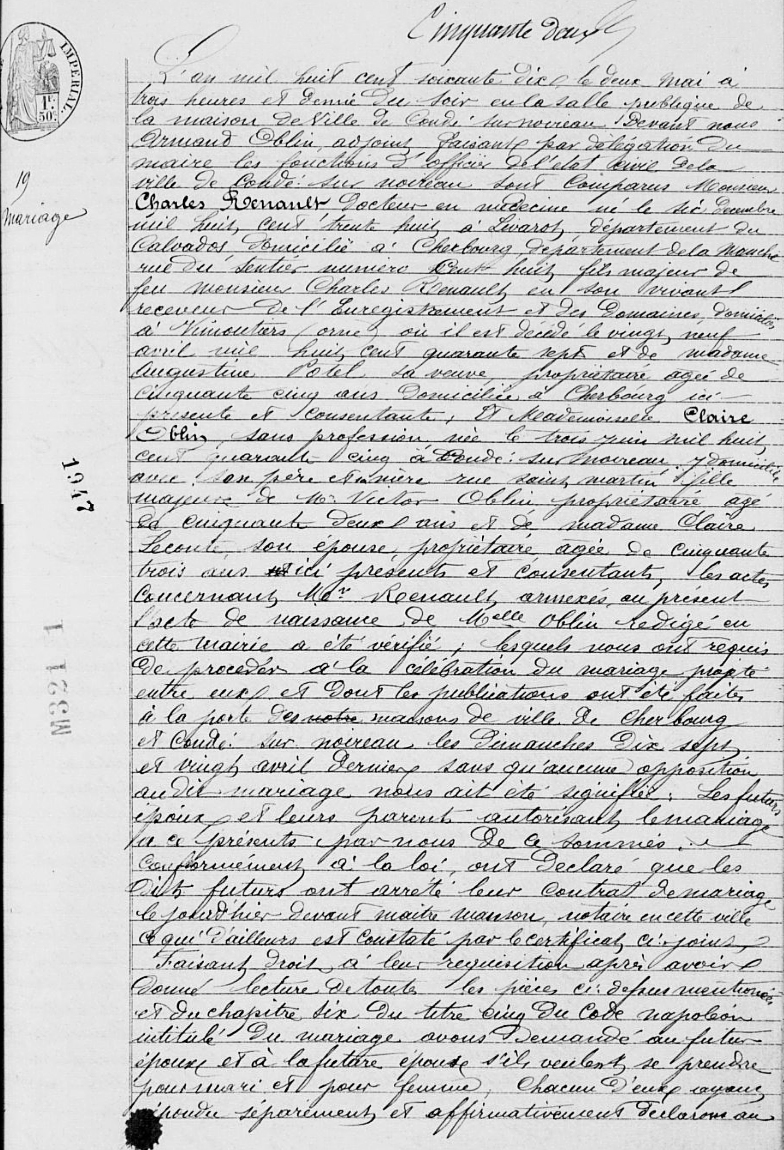 Cinquante deux
IMPERIAL.
1F.
50c
19
Mariage
2491
M321 1
L'an mil huit cent soixante dix, le deux mai à
trois heures et demie du soir en la salle publique de
la maison de ville de Condé sur noireau. Devant nous
Armand Oblin, adjoint, faisant par délégation du
maire les fonctions d'officier de l'état civil de la
ville de Condé sur noireau sont Comparus Monsieur
Charles Renault Docteur en médecine né le six Décembre
mil huit cent trente huit à Livarot, département du
Calvados, domicilié à Cherbourg, département de la Manche
rue du Sentier numéro huit, fils majeur de
feu monsieur Charles Renault, en son vivant
receveur de l'Enregistrement et des Domaines, domicilié
à Vimoutiers (orne) où il est décédé le vingt neuf
avril mil huit cent quarante sept et de madame
Augustine Potel sa veuve, propriétaire agée de
cinquante cinq ans domiciliée à Cherbourg ici
présente et consentante; Et Mademoiselle Claire
Oblin, sans profession, née le trois juin mil huit
cent quarante cinq à Condé sur noireau, y domiciliée
avec son père et mère rue saint martin, fille
majeure de Mr Victor Oblin propriétaire agé
de cinquante deux ans et de madame Claire
Leconte, son épouse, propriétaire agée de cinquante
trois ans ici présents et consentants, les actes
concernant Mr Renault annexés au présent
l'acte de naissance de Melle Oblin rédigé en
cette mairie a été vérifié; lesquels nous ont requis
de procéder à la célébration du mariage projeté
entre eux et dont les publications ont été faites
à la porte des notre maisons de ville de Cherbourg
et Condé sur noireau les dimanches dix sept
et vingt avril dernier sans qu'aucune opposition
audit mariage nous ait été signifiée; Les futurs
époux et leurs parents autorisant le mariage
à ce présents par nous de ce sommés
conformément à la loi, ont déclaré que les
dits futurs ont arreté leur contrat de mariage
le jourd'hier devant maitre manson, notaire en cette ville
ce qui d'ailleurs est constaté par le certificat ci-joint
Faisant droit à leur requisition après avoir
donné lecture de toutes les pièces ci-dessus mentionnées
et du chapitre six du titre cinq du Code napoleon
intitulé du mariage avons demandé au futur
époux et à la future épouse s'ils veulent se prendre
pour mari et pour femme, chacun d'eux ayant
répondu séparément et affirmativement déclarons au